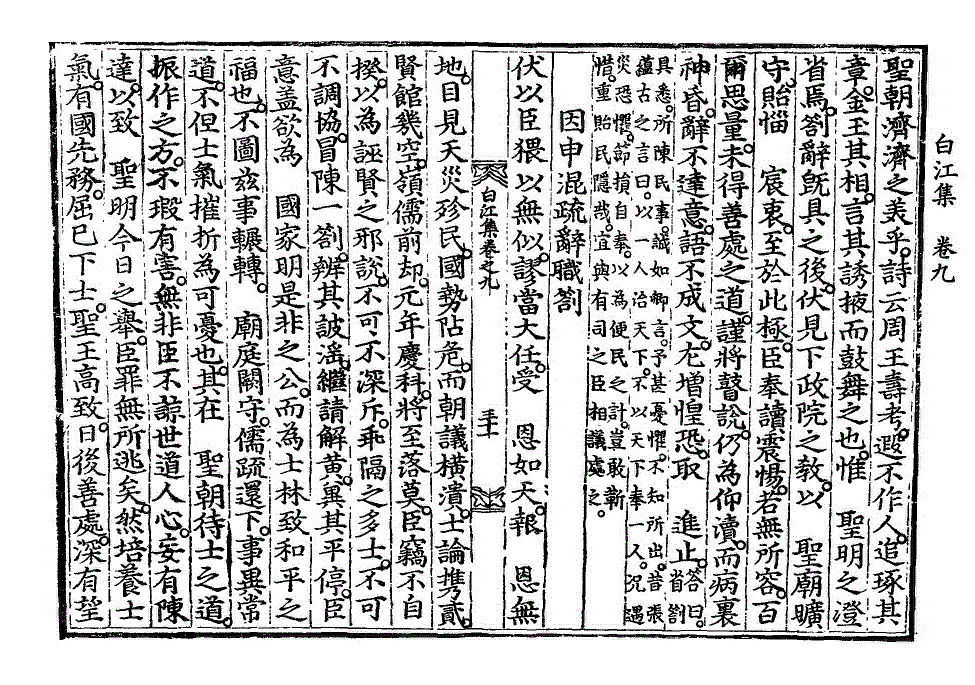 白江集 卷九
聖朝濟濟之美乎。詩云周王壽考。遐不作人。追琢其
章。金玉其相。言其誘掖而鼓舞之也。惟 聖明之澄
省焉。箚辭旣具之後。伏見下政院之敎。以 聖廟曠
守。貽惱 宸衷。至於此極。臣奉讀震惕。若無所容。百
爾思量。未得善處之道。謹將瞽說。仍爲仰瀆。而病裏
神昏。辭不達意。語不成文。尤增惶恐。取 進止。答曰。省箚
具悉。所陳民事。誠如卿言。予甚憂懼。不知所出。昔張
蘊古之言曰。以一人治天下。不以天下奉一人。況遇
災恐懼。節損自奉。以爲便民之計。豈敢靳
惜。重貽民隱哉。宜與有司之臣相議處之。
因申混疏辭職箚
伏以臣猥以無似。謬當大任。受 恩如天。報 恩無
白江集卷之九
地。目見天災殄民。國勢阽危。而朝議橫潰。士論携貳。
賢館幾空。嶺儒前却。元年慶科。將至落莫。臣竊不自
揆。以爲誣賢之邪說。不可不深斥。乖隔之多士。不可
不調協。冒陳一箚。辨其詖淫。繼請解黃。冀其平停。臣
意蓋欲爲 國家明是非之公。而爲士林致和平之
福也。不圖玆事輾轉。 廟庭闕守。儒疏還下。事異常
道。不但士氣摧折爲可憂也。其在 聖朝待士之道。
振作之方。不瑕有害。無非臣不諒世道人心。妄有陳
達。以致 聖明今日之擧。臣罪無所逃矣。然培養士
氣。有國先務。屈已下士。聖王高致。日後善處。深有望